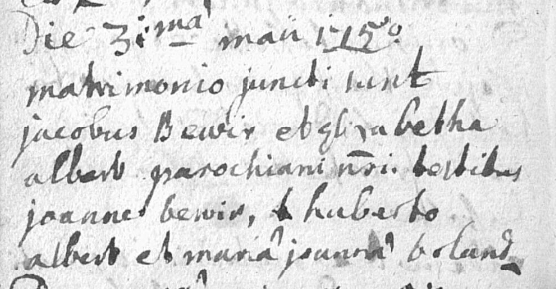 Die 31ma maii 1715o
matrimonio juncti sunt
jacobus Bewir et Elizabetha
albert parochiani nri. testibus
joanne bewir, & huberto
albert et mariâ joannâ boland